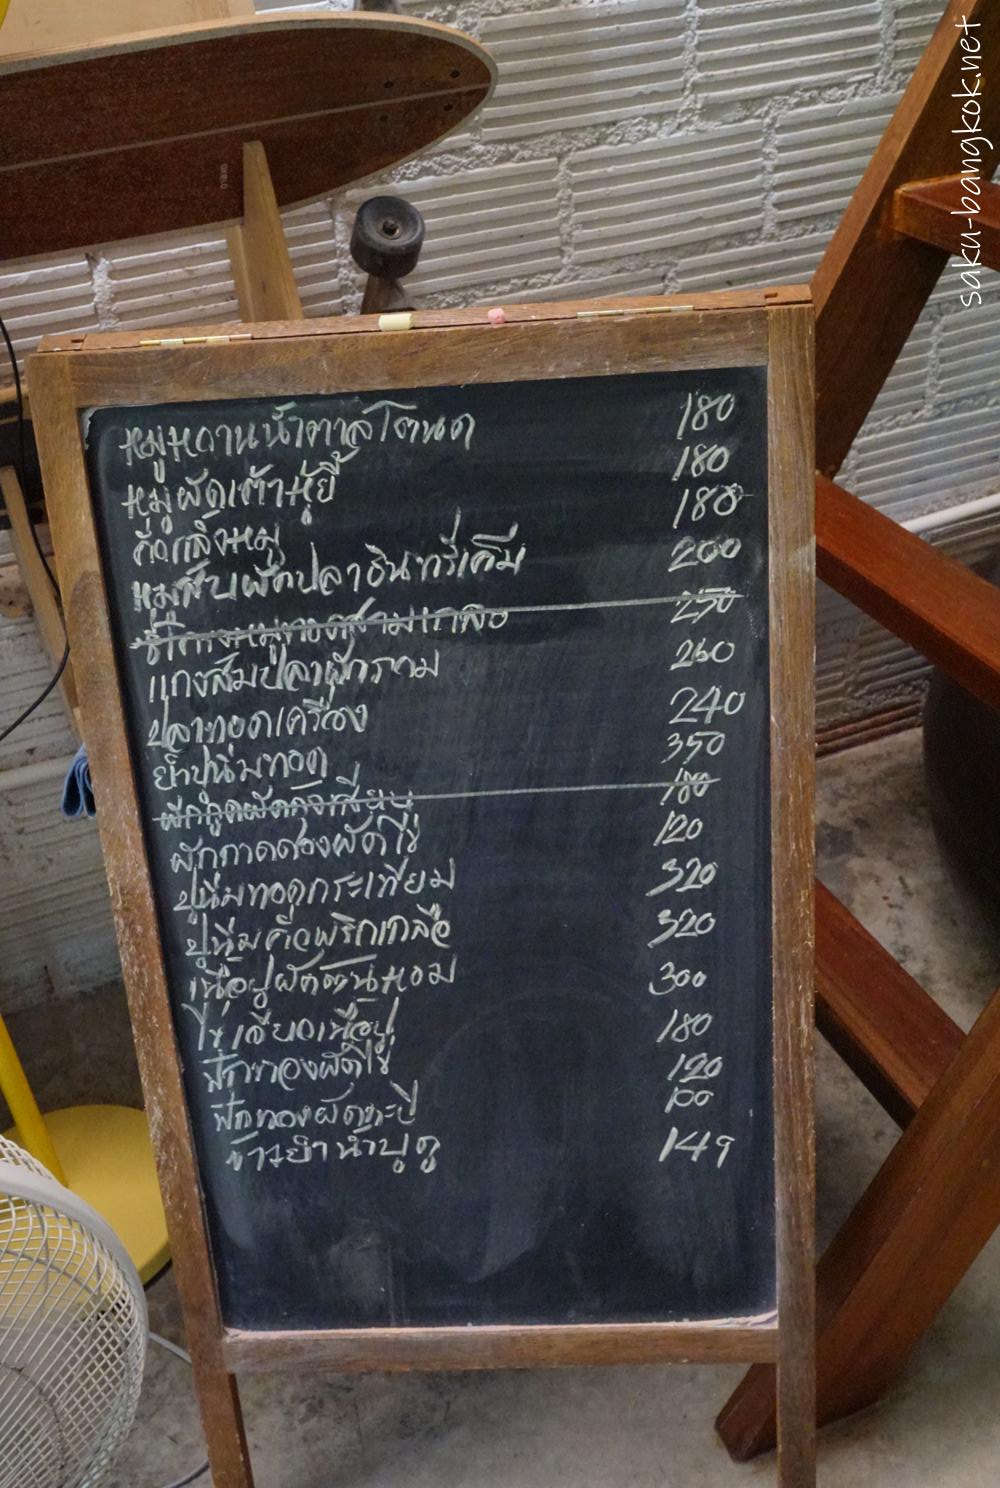 saku-bangkok.net
หมูหวานน้ำตาลโตนด 180
หมูผัดเต้าหู้ยี้ 180
คั่วกลิ้งหมู 180
หมูสับผัดปลาอินทรีเค็ม 200
ซี่โครงหมูทอดสามเกลอ 250
แกงส้มปลาผักรวม 260
ปลาทอดเครื่อง 240
ยำปูนิ่มทอด 350
ผักกูดผัดกุ้งเสียบ 180
ผักกาดดองผัดไข่ 120
ปูนิ่มทอดกระเทียม 320
ปูนิ่มคั่วพริกเกลือ 320
เนื้อปูผัดต้นหอม 300
ไข่เจียวเนื้อปู 180
ฟักทองผัดไข่ 120
ฟักทองผัดกะปิ 100
ข้าวยำน้ำบูดู 149